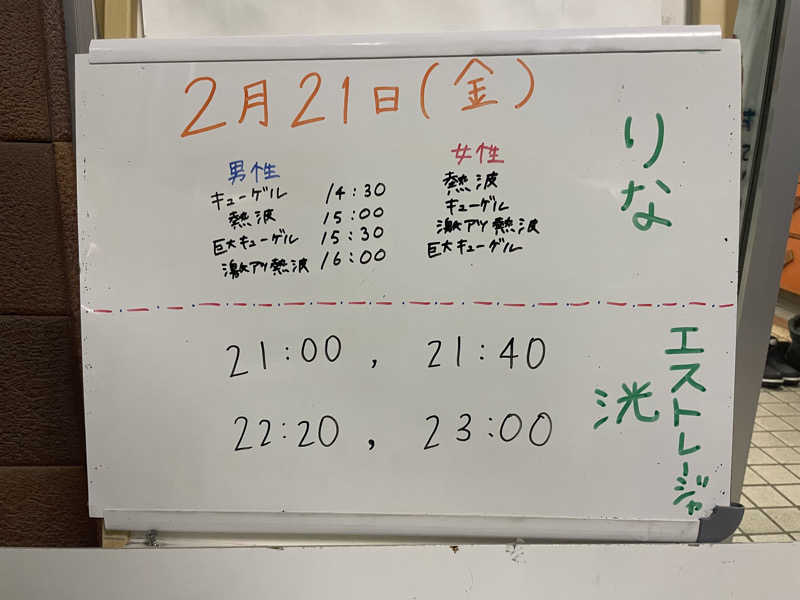 2月21日(金)
男性 女性
キューゲル 14:30 熱波
熱波 15:00 キューゲル
巨大キューゲル 15:30 激アツ熱波
激アツ熱波 16:00 巨大キューゲル
りな
21:00 , 21:40
22:20 , 23:00
エストレージャ
洸